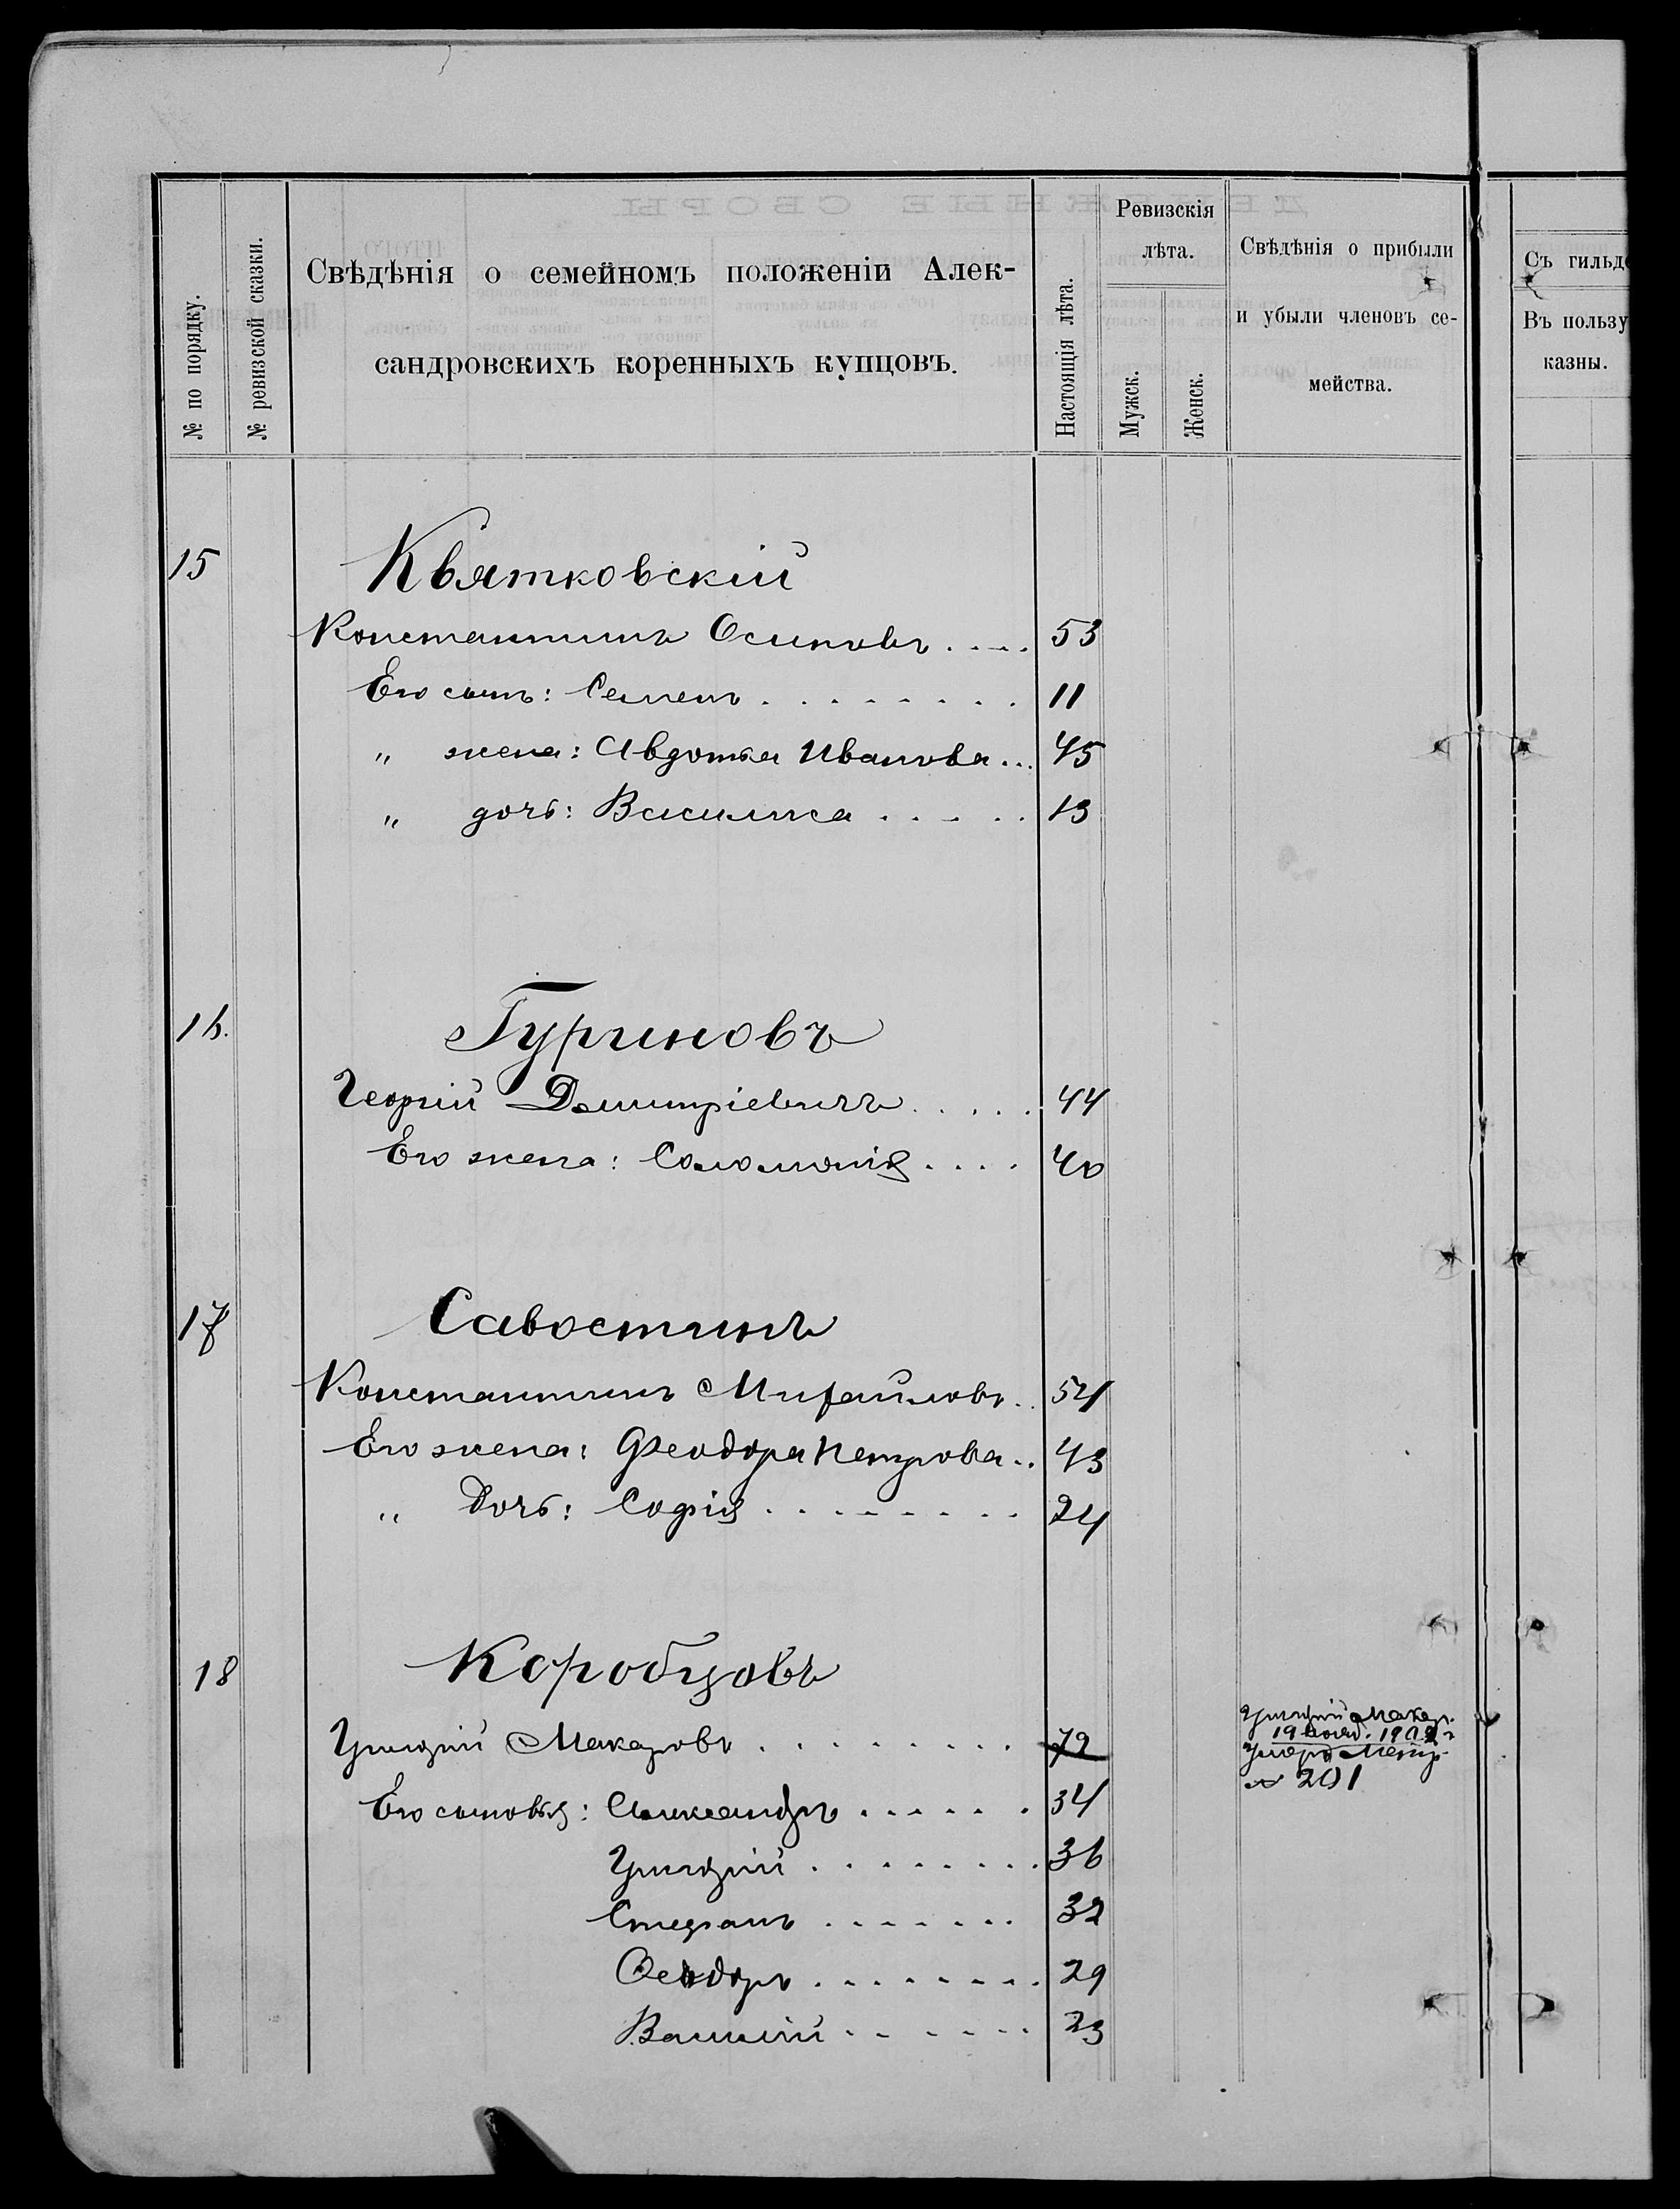 № по порядку.
№ ревизской сказки.
Свѣдѣнія о семейномъ положеніи Алек-
сандровскихъ коренныхъ купцовъ.
Настоящія лѣта.
Ревизскія
лѣта.
Мужск.
Женск.
Свѣдѣнія о прибыли
и убыли членовъ се-
мейства.
Съ гильд
Въ пользу
казны.
15 Квятковскій
Константинъ Осиповъ .... 53
Его сынъ: Семенъ ........ 11
„ жена: Авдотья Иванова ... 45
„ дочь: Василиса ..... 13
16. Гургиновъ
Георгій Димитріевичъ ..... 44
Его жена: Соломонія .... 40
17 Савостинъ
Константинъ Михайловъ .. 54
Его жена: Феодора Петрова .. 43
„ дочь: Софія ........ 24
18 Коробцовъ
Григорій Макаровъ ......... 72
Григорій Макар.
19 1902 г
умеръ Метр.
№ 201
Его сыновья: Александръ ...... 34
Григорій ........ 36
Стефанъ ....... 32
Ѳеодоръ ........ 29
Василій ...... 23